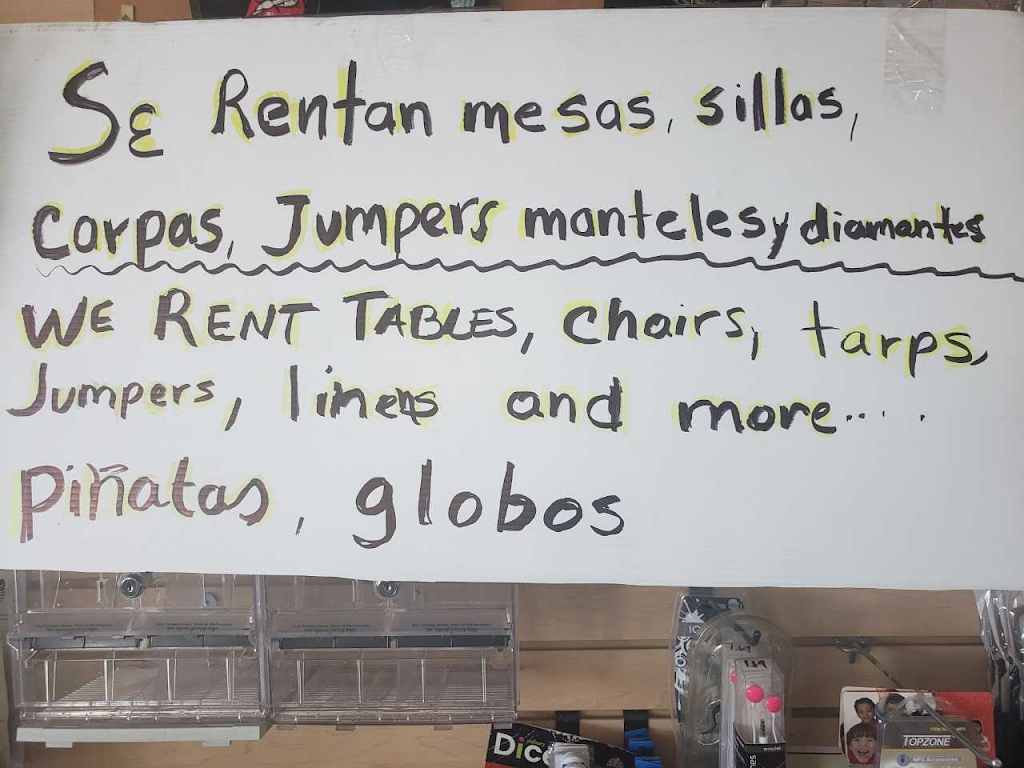 Se Rentan mesas, sillas,
Carpas, Jumpers manteles y diamantes
WE RENT TABLES, chairs, tarps,
Jumpers, linens and more....
piñatas, globos
1.69
1.69
Dico
TOPZONE
MP3 Accessories